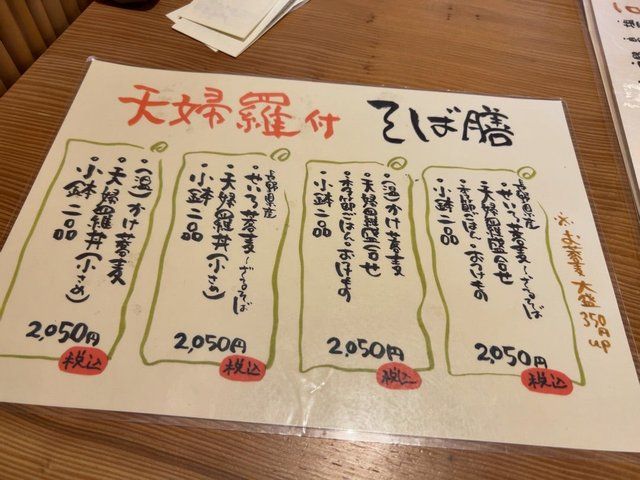 天婦羅付 そば膳
長野県産
・せいろ蕎麦～ざるそば
・天婦羅盛合せ
・季節ごはん・おつけもの
・小鉢 二品
2,050円
税込
・(温)かけ蕎麦
・天婦羅盛合せ
・季節ごはん・おつけもの
・小鉢 二品
2,050円
税込
長野県産
・せいろ蕎麦～ざるそば
・天婦羅丼(小さめ)
・小鉢 二品
2,050円
税込
・(温)かけ蕎麦
・天婦羅丼(小さめ)
・小鉢 二品
2,050円
税込
※お蕎麦大盛 350円up